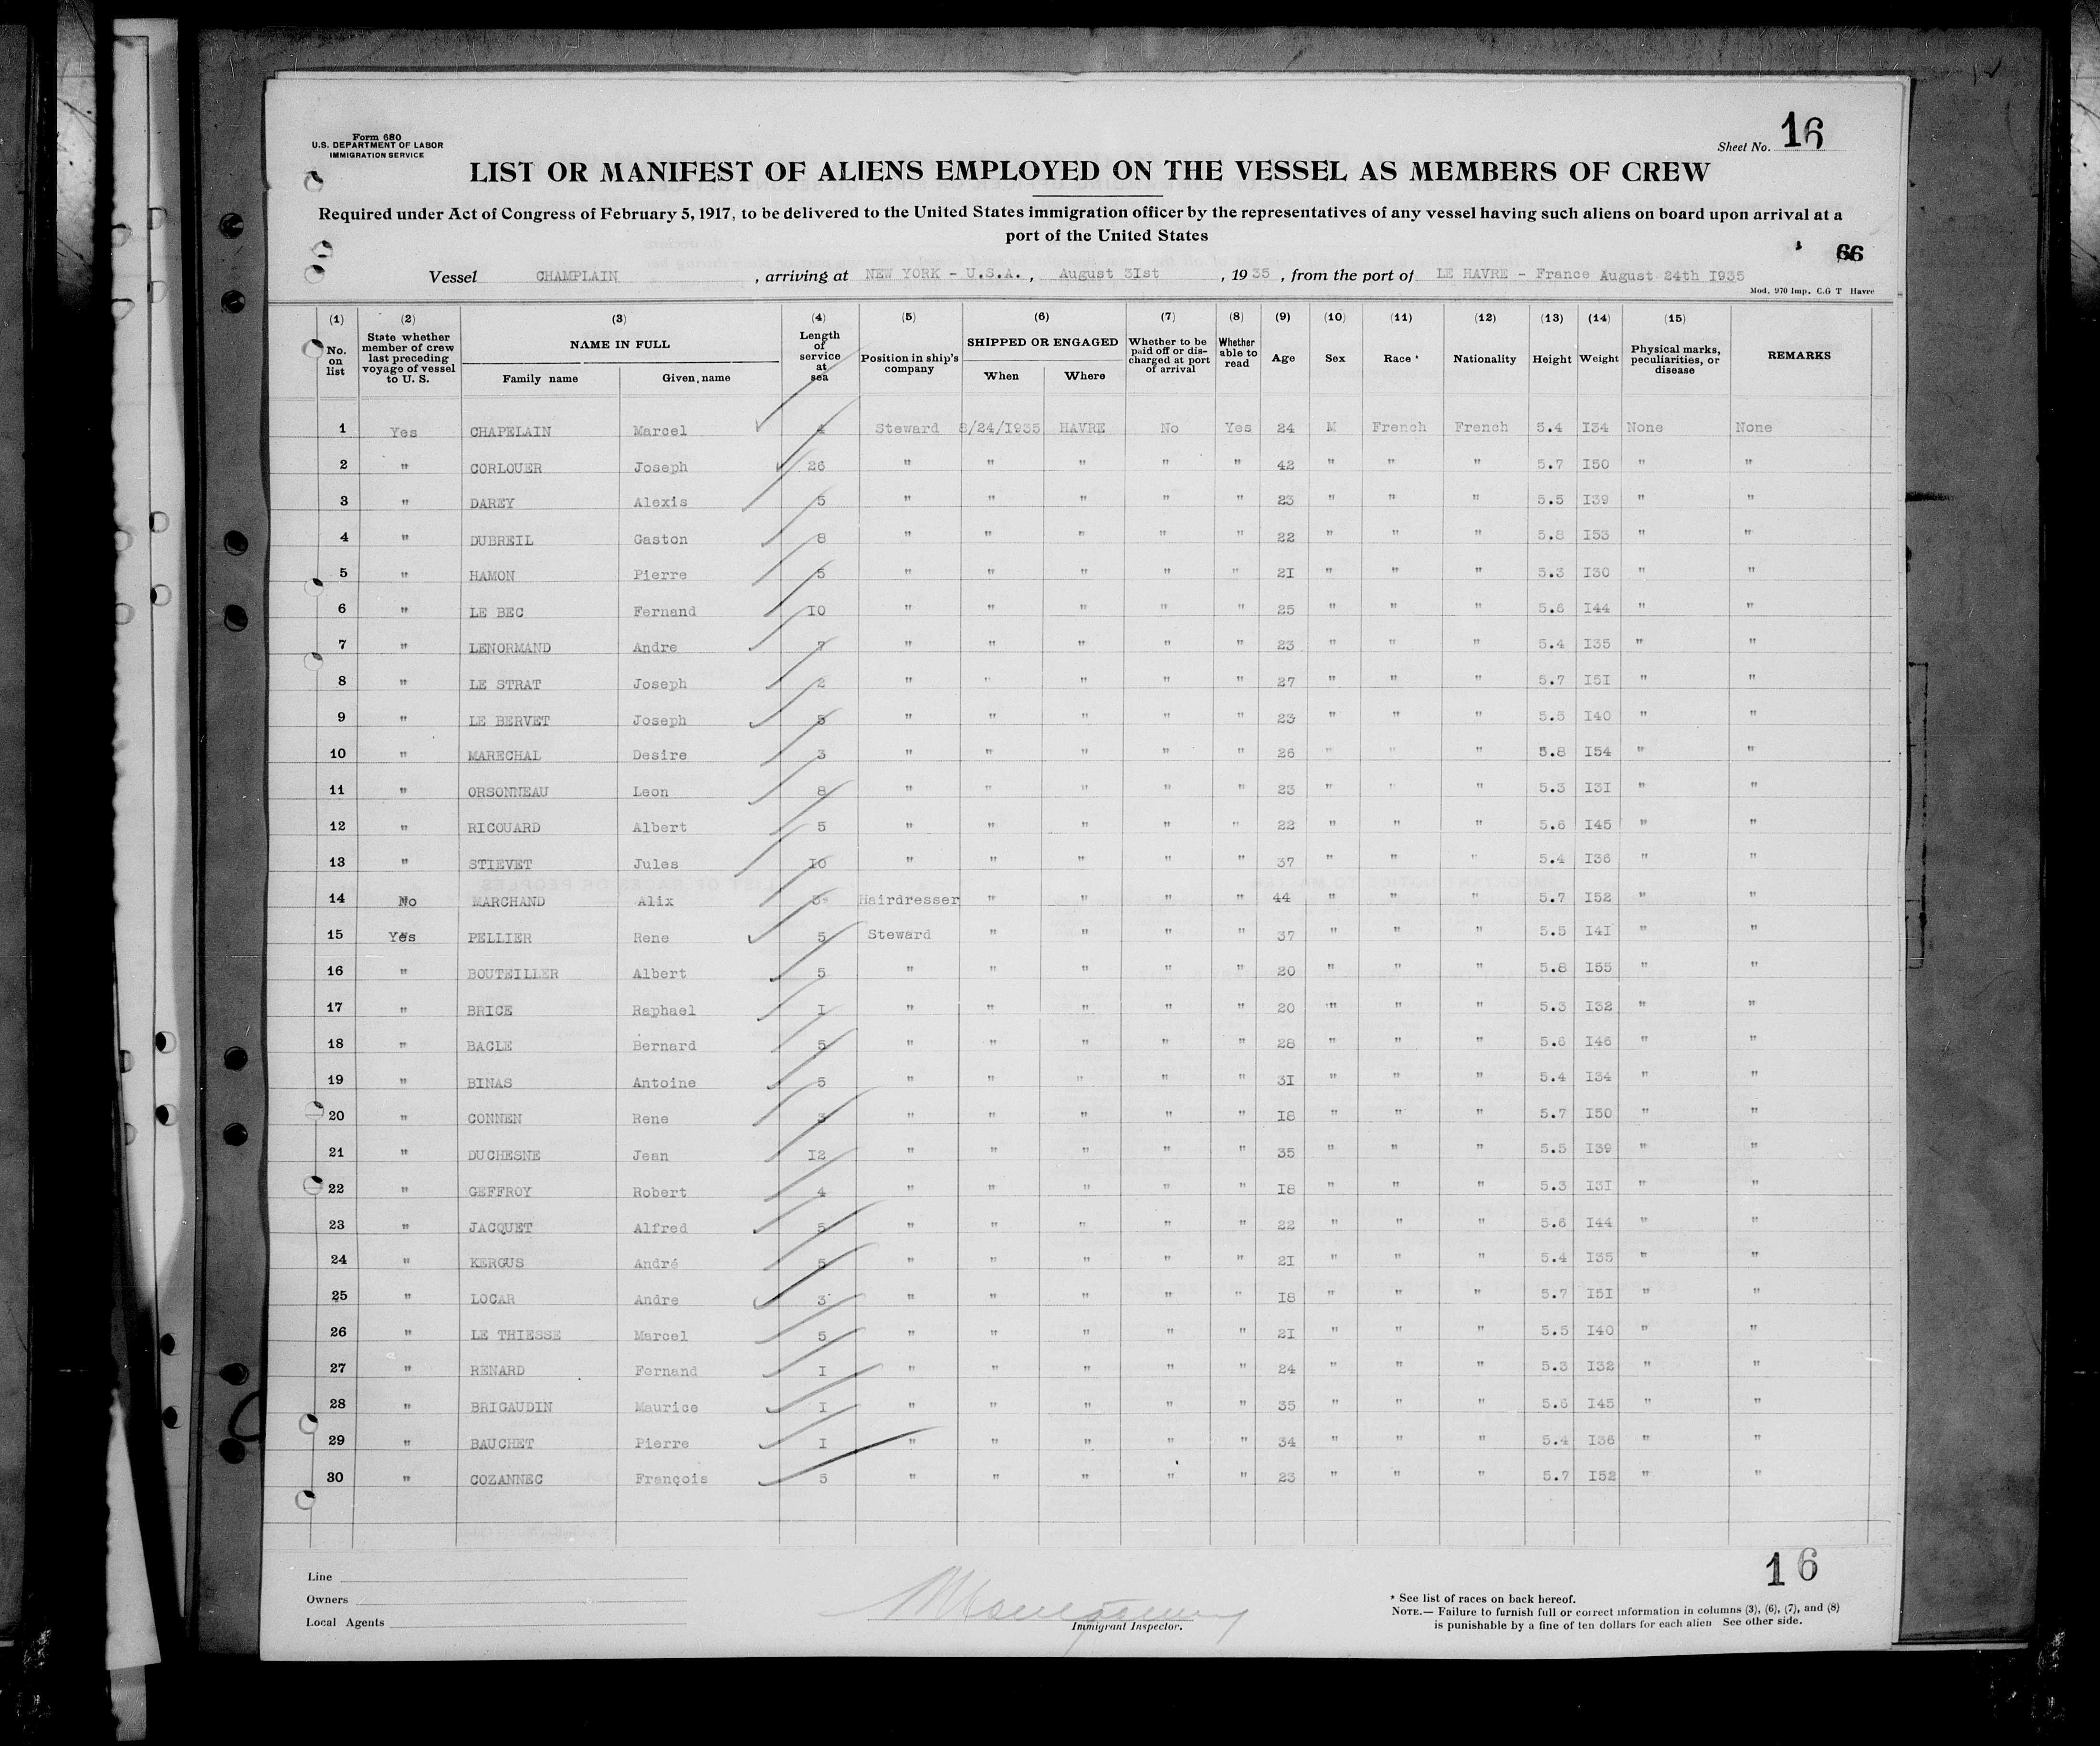 Form 680
U.S. DEPARTMENT OF LABOR
IMMIGRATION SERVICE
Sheet No. 16
LIST OR MANIFEST OF ALIENS EMPLOYED ON THE VESSEL AS MEMBERS OF CREW
Required under Act of Congress of February 5, 1917, to be delivered to the United States immigration officer by the representatives of any vessel having such aliens on board upon arrival at a
port of the United States
66
Vessel CHAMPLAIN , arriving at NEW YORK - U.S.A. , August 3Ist , 1935 , from the port of LE HAVRE - France August 24th I935
Mod. 970 Imp. C.G T Havre
(1) No. on list (2) State whether member of crew last preceding voyage of vessel to U. S. (3) NAME IN FULL Family name Given name (4) Length of service at sea (5) Position in ship's company (6) SHIPPED OR ENGAGED When Where (7) Whether to be paid off or discharged at port of arrival (8) Whether able to read (9) Age (10) Sex (11) Race * (12) Nationality (13) Height (14) Weight (15) Physical marks, peculiarities, or disease REMARKS
1 Yes CHAPELAIN Marcel 4 Steward 8/24/I935 HAVRE No Yes 24 M French French 5.4 I34 None None
2 " CORLOUER Joseph 26 " " " " " 42 " " " 5.7 I50 " "
3 " DAREY Alexis 5 " " " " " 23 " " " 5.5 I39 " "
4 " DUBREIL Gaston 8 " " " " " 22 " " " 5.8 I53 " "
5 " HAMON Pierre 5 " " " " " 2I " " " 5.3 I30 " "
6 " LE BEC Fernand IO " " " " " 25 " " " 5.6 I44 " "
7 " LENORMAND Andre 7 " " " " " 23 " " " 5.4 I35 " "
8 " LE STRAT Joseph 2 " " " " " 27 " " " 5.7 I5I " "
9 " LE BERVET Joseph 5 " " " " " 23 " " " 5.5 I40 " "
10 " MARECHAL Desire 3 " " " " " 26 " " " 5.8 I54 " "
11 " ORSONNEAU Leon 8 " " " " " 23 " " " 5.3 I3I " "
12 " RICOUARD Albert 5 " " " " " 22 " " " 5.6 I45 " "
13 " STIEVET Jules IO " " " " " 37 " " " 5.4 I36 " "
14 No MARCHAND Alix Hairdresser " " " " 44 " " " 5.7 I52 " "
15 Yes PELLIER Rene 5 Steward " " " " 37 " " " 5.5 I4I " "
16 " BOUTEILLER Albert 5 " " " " " 20 " " " 5.8 I55 " "
17 " BRICE Raphael I " " " " " 20 " " " 5.3 I32 " "
18 " BACLE Bernard 5 " " " " " 28 " " " 5.6 I46 " "
19 " BINAS Antoine 5 " " " " " 3I " " " 5.4 I34 " "
20 " CONNEN Rene 3 " " " " " I8 " " " 5.7 I50 " "
21 " DUCHESNE Jean I2 " " " " " 35 " " " 5.5 I39 " "
22 " GEFFROY Robert 4 " " " " " I8 " " " 5.3 I3I " "
23 " JACQUET Alfred 5 " " " " " 22 " " " 5.6 I44 " "
24 " KERGUS André 5 " " " " " 2I " " " 5.4 I35 " "
25 " LOCAR Andre 3 " " " " " I8 " " " 5.7 I5I " "
26 " LE THIESSE Marcel 5 " " " " " 2I " " " 5.5 I40 " "
27 " RENARD Fernand I " " " " " 24 " " " 5.3 I32 " "
28 " BRIGAUDIN Maurice I " " " " " 35 " " " 5.6 I45 " "
29 " BAUCHET Pierre I " " " " " 34 " " " 5.4 I36 " "
30 " COZANNEC François 5 " " " " " 23 " " " 5.7 I52 " "
16
Line
Owners
Local Agents
Immigrant Inspector.
* See list of races on back hereof.
NOTE.— Failure to furnish full or correct information in columns (3), (6), (7), and (8)
is punishable by a fine of ten dollars for each alien See other side.